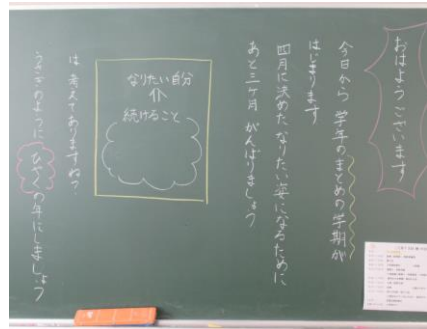 おはようございます
今日から 学年のまとめの学期が
はじまります
四月に決めた なりたい姿になるために
あと三ヶ月 がんばりましょう
なりたい自分
⇑
続けること
は 考えてありますね?
うさぎのように ひやくの年にしましょう